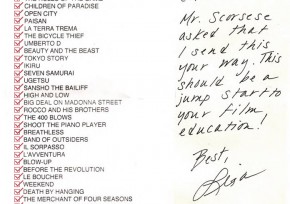 CHILDREN OF PARADISE
OPEN CITY
PAISAN
LA TERRA TREMA
THE BICYCLE THIEF
UMBERTO D
BEAUTY AND THE BEAST
TOKYO STORY
IKIRU
SEVEN SAMURAI
UGETSU
SANSHO THE BAILIFF
HIGH AND LOW
BIG DEAL ON MADONNA STREET
ROCCO AND HIS BROTHERS
THE 400 BLOWS
SHOOT THE PIANO PLAYER
BREATHLESS
BAND OF OUTSIDERS
IL SORPASSO
L'AVVENTURA
BLOW-UP
BEFORE THE REVOLUTION
LE BOUCHER
WEEKEND
DEATH BY HANGING
THE MERCHANT OF FOUR SEASONS
Mr. Scorsese
asked that
I send this
your way. This
should be a
jump start to
your film
education!
Best,